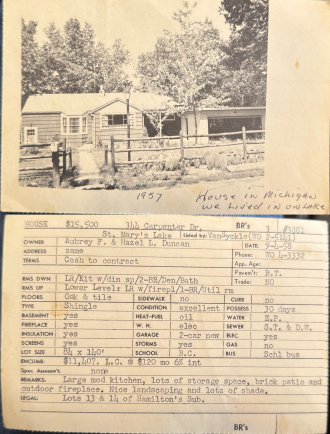 1957
House in Michigan
we lived in on lake
HOUSE $15,500 344 Carpenter Dr, BR's
St. Mary's Lake Listed by: (WO 2-5141)
OWNER Aubrey F. & Hazel L. Duncan DATE: 9-4-58
ADDRESS same Phone: WO 4-3332
TERMS Cash to contract App. Age:
Pavem't: B.T.
RMS DWN LR/Kit w/din sp/2-BR/Den/Bath Trade: NO
RMS UP Lower Level: LR w/firepl/1-BR/Util rm
FLOORS Oak & tile SIDEWALK no CURB no
TYPE Shingle CONDITION excellent POSSESS 30 days
BASEMENT yes HEAT-FUEL oil WATER E.P.
FIREPLACE yes W. H. elec SEWER S.T. & D.W.
INSULATION yes GARAGE 2-car new ELEC. yes
SCREENS yes STORMS yes GAS no
LOT SIZE 84 x 140' SCHOOL B.C. BUS Schl bus
ENCUMB: $11,407. L.C. @ $120 mo 6% int
Spec. Assessm't. none
REMARKS: Large mod kitchen, lots of storage space, brick patio and
outdoor fireplace. Nice landscaping and lots of shade.
LEGAL: Lots 13 & 14 of Hamilton's Sub.
BR's